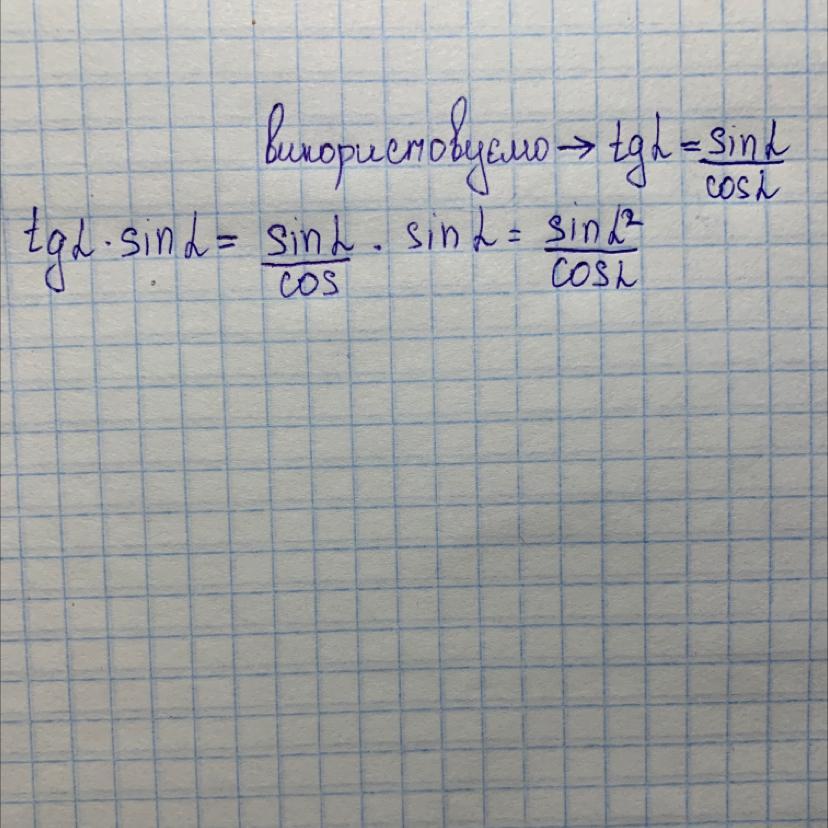 використовуємо → tgα = sinα/cosα
tgα · sinα = sinα/cos · sinα = sinα²/cosα